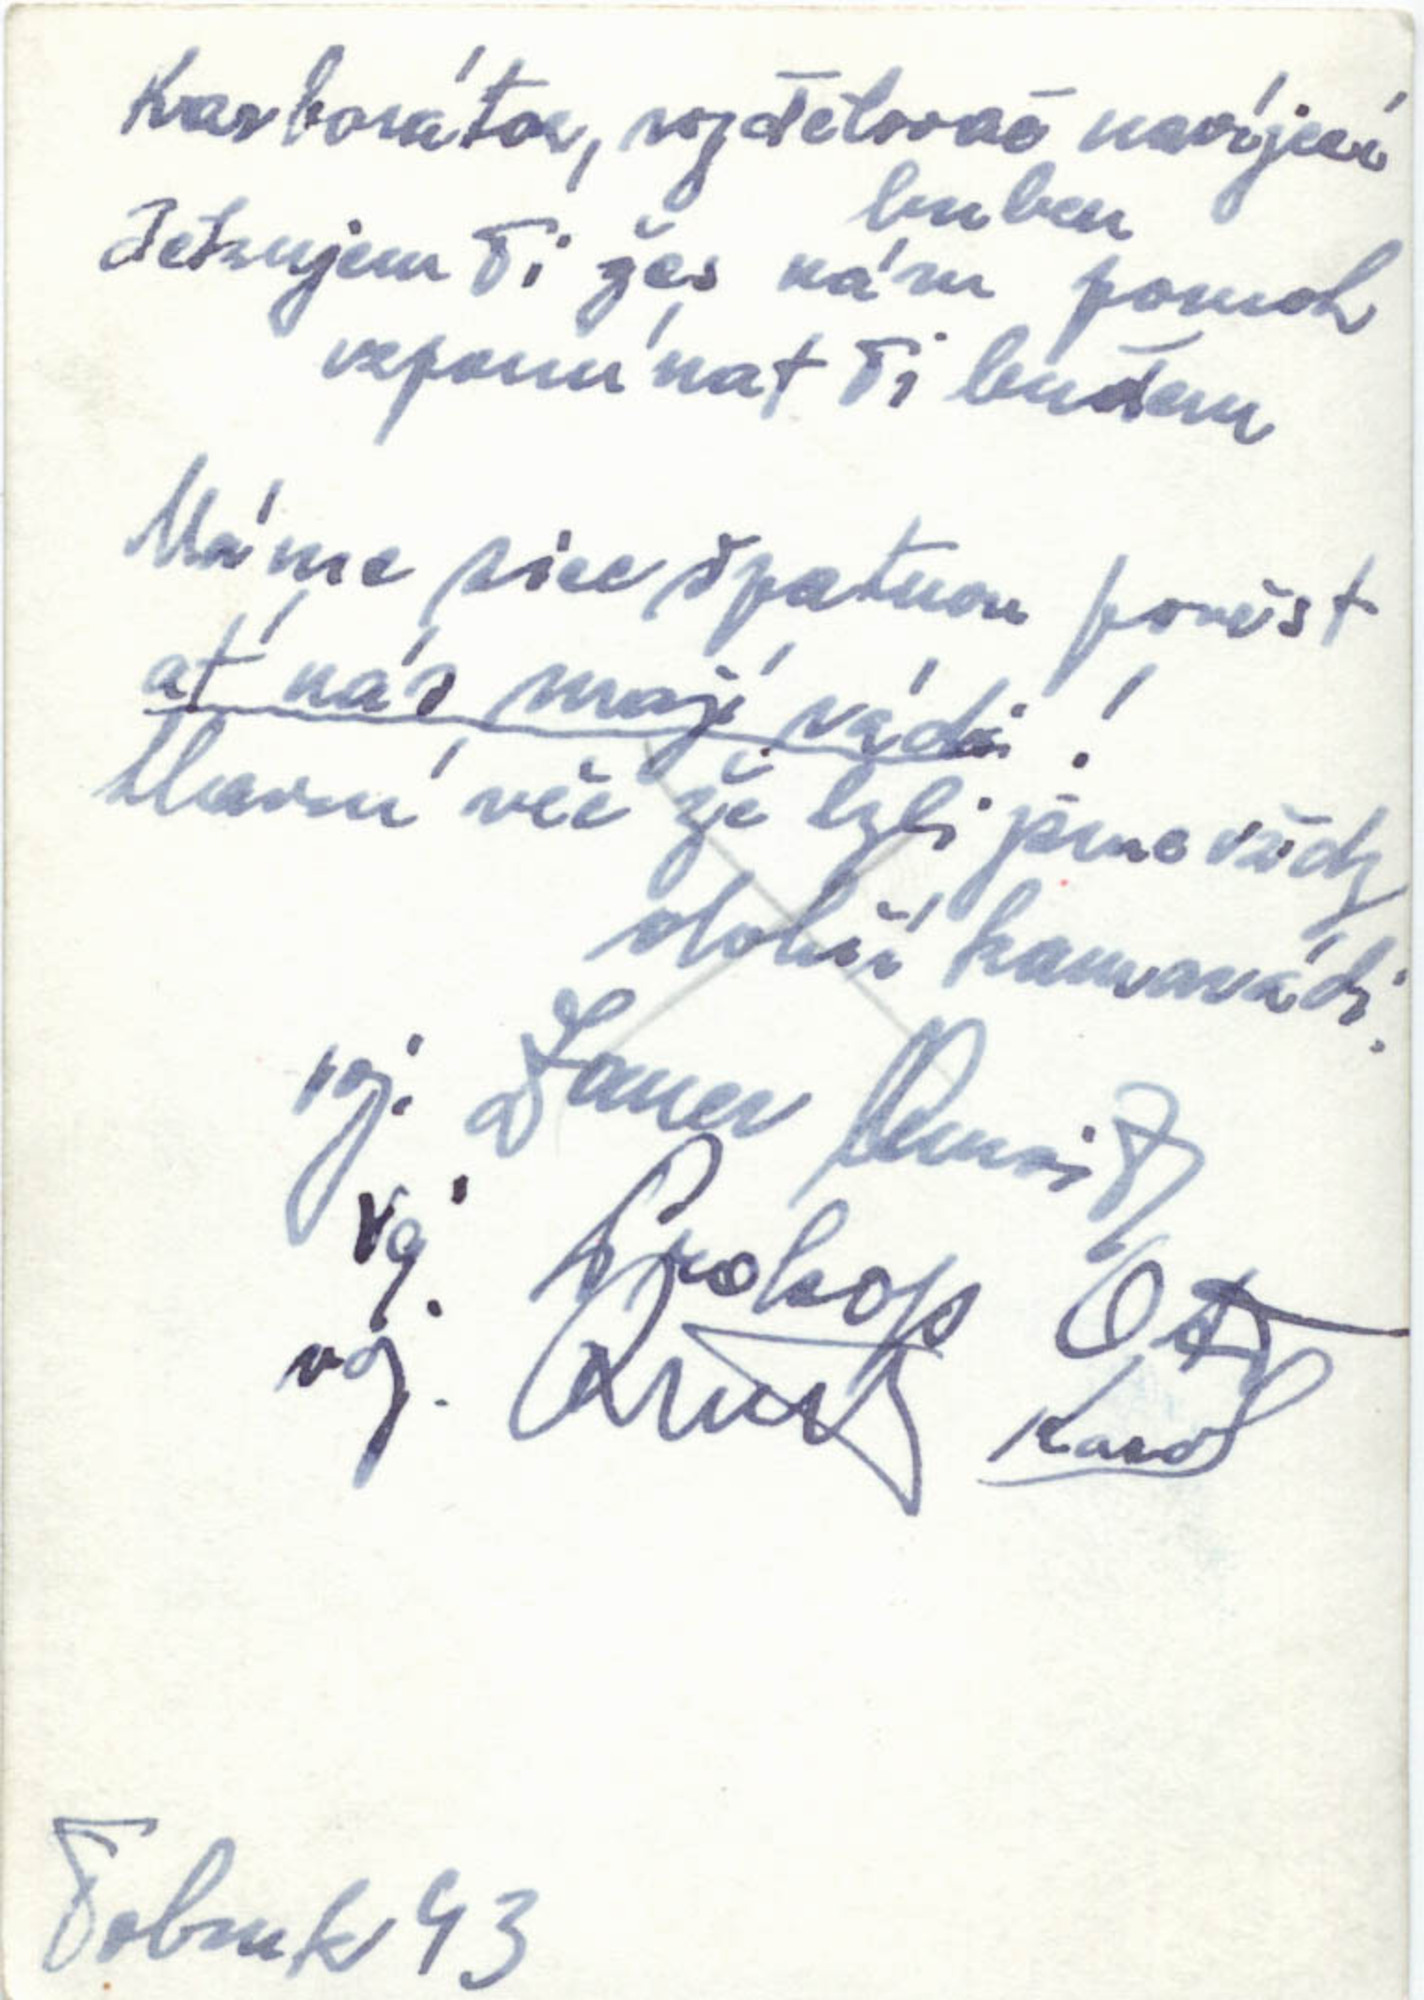 Karborátor, rozdělovač navíjecí
buben
Děkujem Ti žes nám pomoh
vzpomínat Ti budem
Máme sice špatnou pověst
ať nás mají rádi!
Hlavní věc že byli jsme vždy
dobří kamarádi.
voj.
voj. Prokop Ota
voj. Karol
Tobruk 43